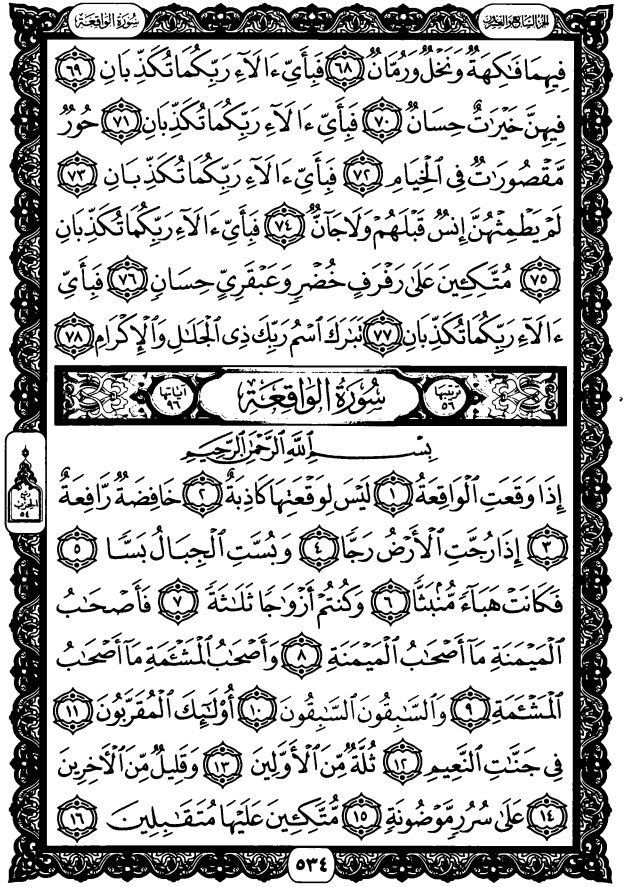 سُورَةُ الوَاقِعَةِ
الجزء السابع والعشرون
فِيهِمَا فَٰكِهَةٌ وَنَخْلٌ وَرُمَّانٌ ٦٨ فَبِأَيِّ ءَالَآءِ رَبِّكُمَا تُكَذِّبَانِ ٦٩
فِيهِنَّ خَيْرَٰتٌ حِسَانٌ ٧٠ فَبِأَيِّ ءَالَآءِ رَبِّكُمَا تُكَذِّبَانِ ٧١ حُورٌ
مَّقْصُورَٰتٌ فِي ٱلْخِيَامِ ٧٢ فَبِأَيِّ ءَالَآءِ رَبِّكُمَا تُكَذِّبَانِ ٧٣
لَمْ يَطْمِثْهُنَّ إِنسٌ قَبْلَهُمْ وَلَا جَآنٌّ ٧٤ فَبِأَيِّ ءَالَآءِ رَبِّكُمَا تُكَذِّبَانِ
٧٥ مُتَّكِـِٔينَ عَلَىٰ رَفْرَفٍ خُضْرٍ وَعَبْقَرِيٍّ حِسَانٍ ٧٦ فَبِأَيِّ
ءَالَآءِ رَبِّكُمَا تُكَذِّبَانِ ٧٧ تَبَٰرَكَ ٱسْمُ رَبِّكَ ذِي ٱلْجَلَٰلِ وَٱلْإِكْرَامِ ٧٨
ترتيبها ٥٦ سُورَةُ الوَاقِعَةِ آياتها ٩٦
بِسْمِ ٱللَّهِ ٱلرَّحْمَٰنِ ٱلرَّحِيمِ
إِذَا وَقَعَتِ ٱلْوَاقِعَةُ ١ لَيْسَ لِوَقْعَتِهَا كَاذِبَةٌ ٢ خَافِضَةٌ رَّافِعَةٌ
٣ إِذَا رُجَّتِ ٱلْأَرْضُ رَجًّا ٤ وَبُسَّتِ ٱلْجِبَالُ بَسًّا ٥
فَكَانَتْ هَبَآءً مُّنۢبَثًّا ٦ وَكُنتُمْ أَزْوَٰجًا ثَلَٰثَةً ٧ فَأَصْحَٰبُ
ٱلْمَيْمَنَةِ مَآ أَصْحَٰبُ ٱلْمَيْمَنَةِ ٨ وَأَصْحَٰبُ ٱلْمَشْـَٔمَةِ مَآ أَصْحَٰبُ
ٱلْمَشْـَٔمَةِ ٩ وَٱلسَّٰبِقُونَ ٱلسَّٰبِقُونَ ١٠ أُو۟لَٰٓئِكَ ٱلْمُقَرَّبُونَ ١١
فِي جَنَّٰتِ ٱلنَّعِيمِ ١٢ ثُلَّةٌ مِّنَ ٱلْأَوَّلِينَ ١٣ وَقَلِيلٌ مِّنَ ٱلْءَاخِرِينَ
١٤ عَلَىٰ سُرُرٍ مَّوْضُونَةٍ ١٥ مُّتَّكِـِٔينَ عَلَيْهَا مُتَقَٰبِلِينَ ١٦
٥٣٤
الحزب
٥٤